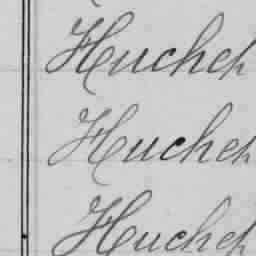 Huchep
Huchep
Huchep